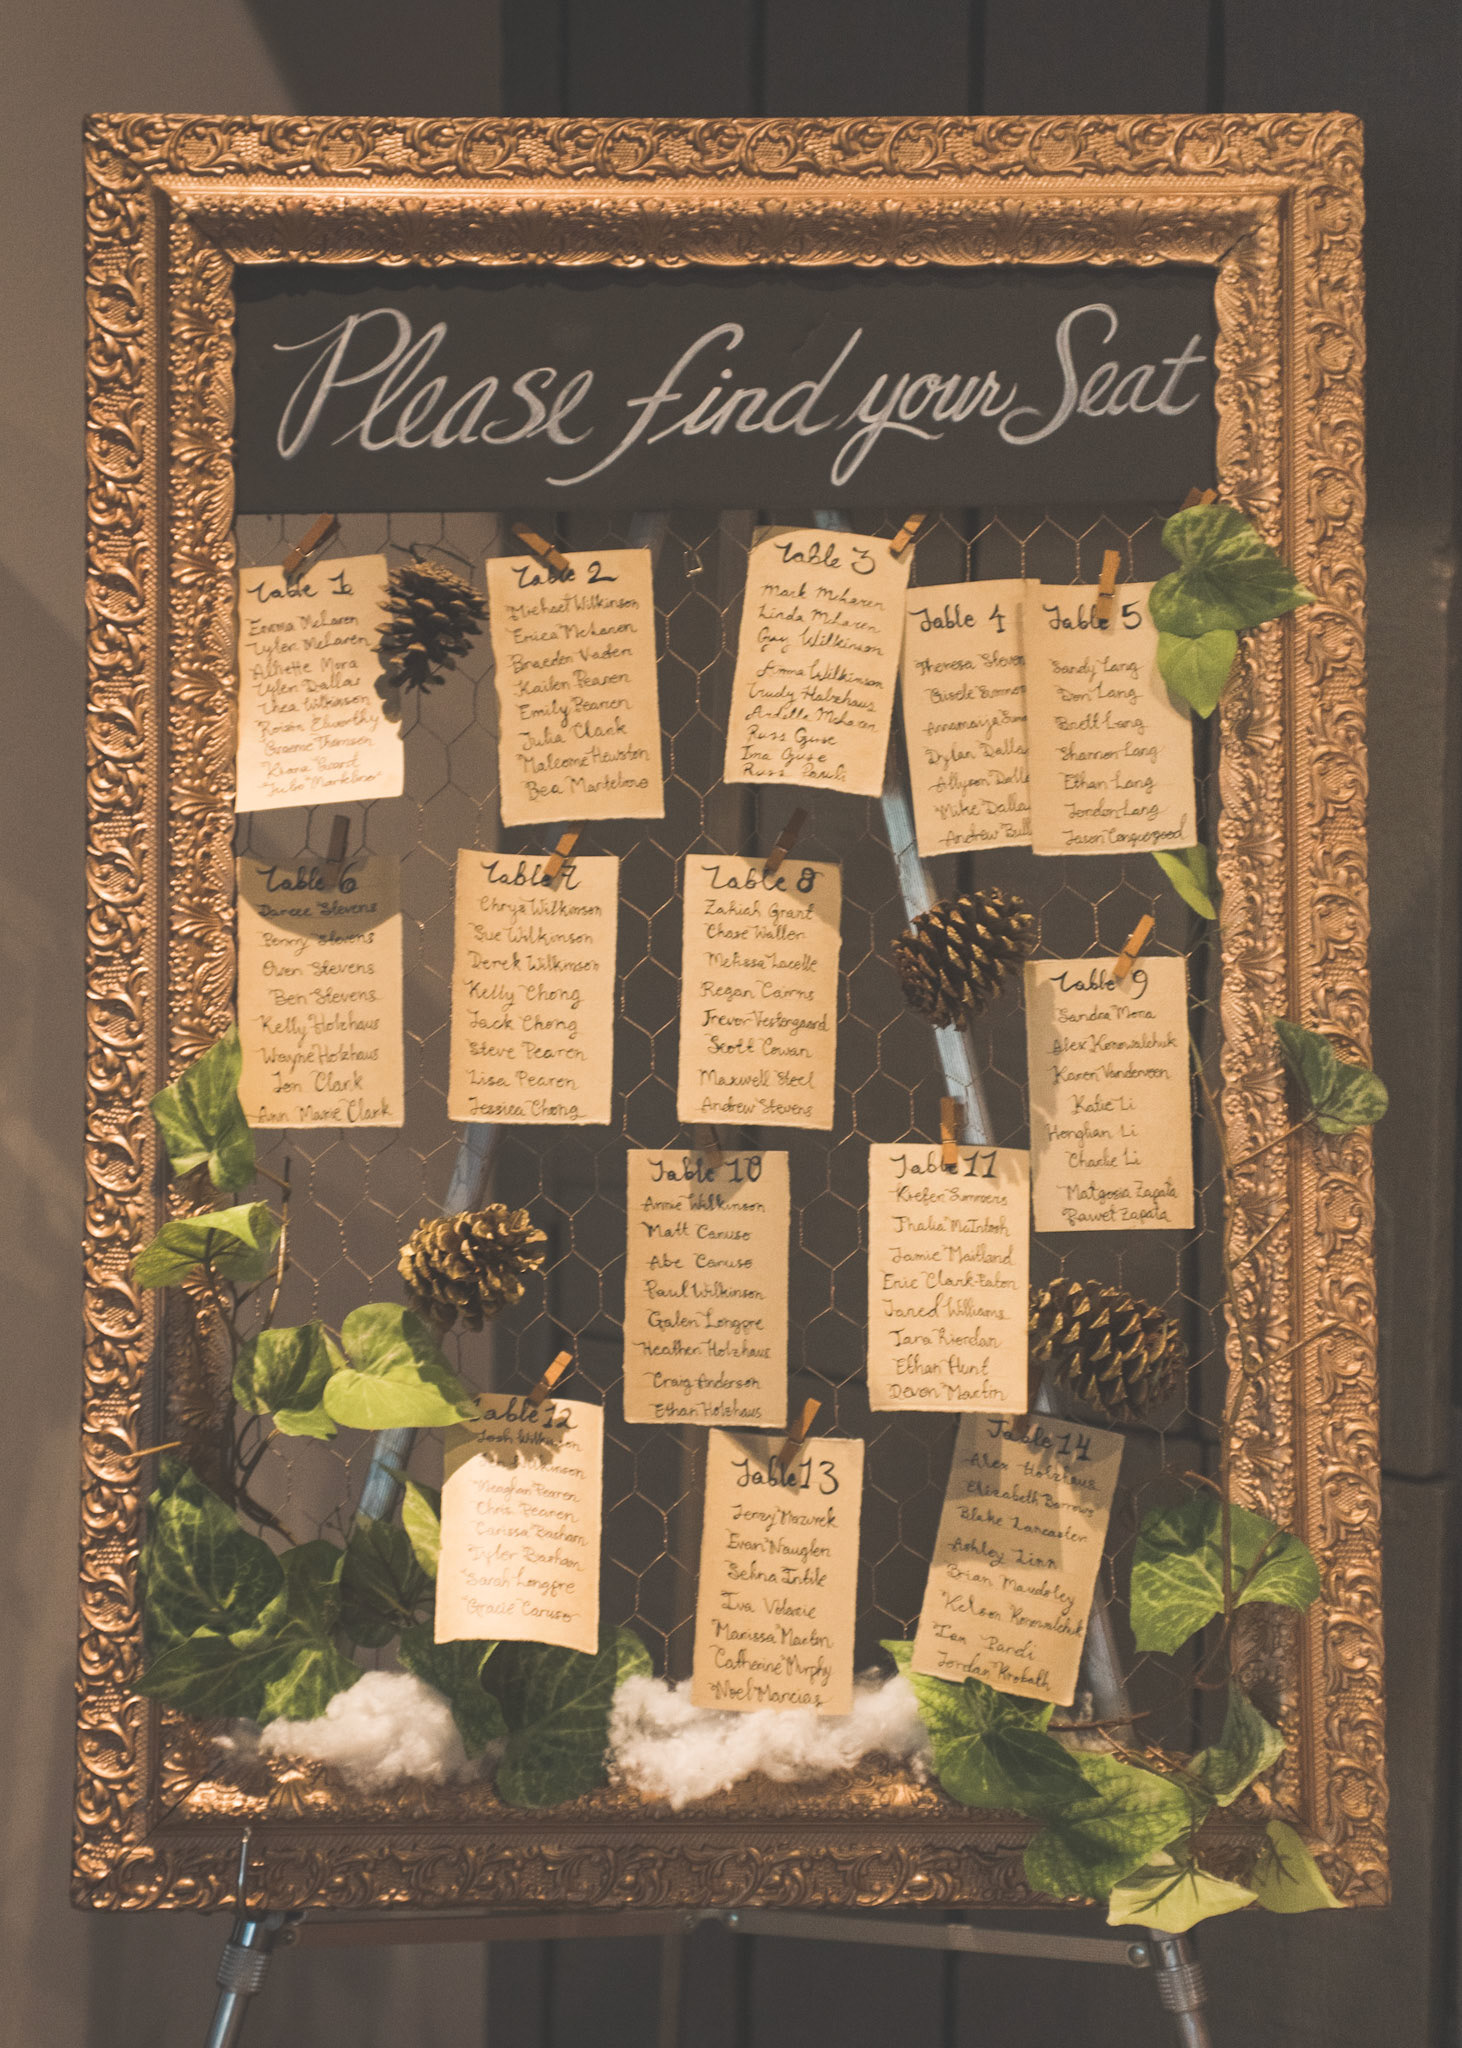 Please find your Seat
Table 1
Emma McLaren
Tyler McLaren
Alliette Mora
Tylen Dallas
Thea Wilkinson
Roisin Elworthy
Graeme Thomson
Kiara Grant
Table 2
Michael Wilkinson
Erica McLaren
Braeden Vaden
Kailen Pearen
Emily Pearen
Julia Clark
Malcome Hewston
Bea Mantelino
Table 3
Mark McLaren
Linda McLaren
Guy Wilkinson
Anna Wilkinson
Trudy Holzhaus
Ardella McLaren
Russ Guse
Ina Guse
Russ Pauls
Table 4
Theresa Steven
Gisele Summer
Annamaya
Dylan Dalla
Allyson Dalla
Mike Dalla
Andrew Bull
Table 5
Sandy Lang
Don Lang
Brett Lang
Shannon Lang
Ethan Lang
Jordon Lang
Jason Conquergood
Table 6
Darcee Stevens
Penny Stevens
Owen Stevens
Ben Stevens
Kelly Holzhaus
Wayne Holzhaus
Jon Clark
Ann Marie Clark
Table 7
Chrys Wilkinson
Sue Wilkinson
Derek Wilkinson
Kelly Chong
Jack Chong
Steve Pearen
Lisa Pearen
Jessica Chong
Table 8
Zakiah Grant
Chase Waller
Melissa Lacelle
Regan Cairns
Trevor Vestergaard
Scott Cowan
Maxwell Steel
Andrew Stevens
Table 9
Sandra Mora
Alex Konowalchuk
Karen Vanderveen
Katie Li
Honghan Li
Charlie Li
Malgosia Zapata
Pawet Zapata
Table 10
Annie Wilkinson
Matt Caruso
Abe Caruso
Paul Wilkinson
Galen Longpre
Heather Holzhaus
Craig Anderson
Ethan Holzhaus
Table 11
Kiefer Summers
Thalia McIntosh
Jamie Maitland
Eric Clark-Eaton
Jared Williams
Tara Riordan
Ethan Hunt
Devon Martin
Table 12
Josh Wilkinson
Meaghan Pearen
Chris Pearen
Carissa Basham
Tyler Basham
Sarah Longpre
Gracie Caruso
Table 13
Jerzy Mrozek
Evan Nauglen
Selina Intile
Iva Volaric
Marissa Marten
Catherine Murphy
Noel Marcias
Table 14
Alex Holzhaus
Elizabeth Burrows
Blake Lancaster
Ashley Linn
Brian Maudsley
Kelson Konowalchuk
Ian Pardi
Jordan Krobath